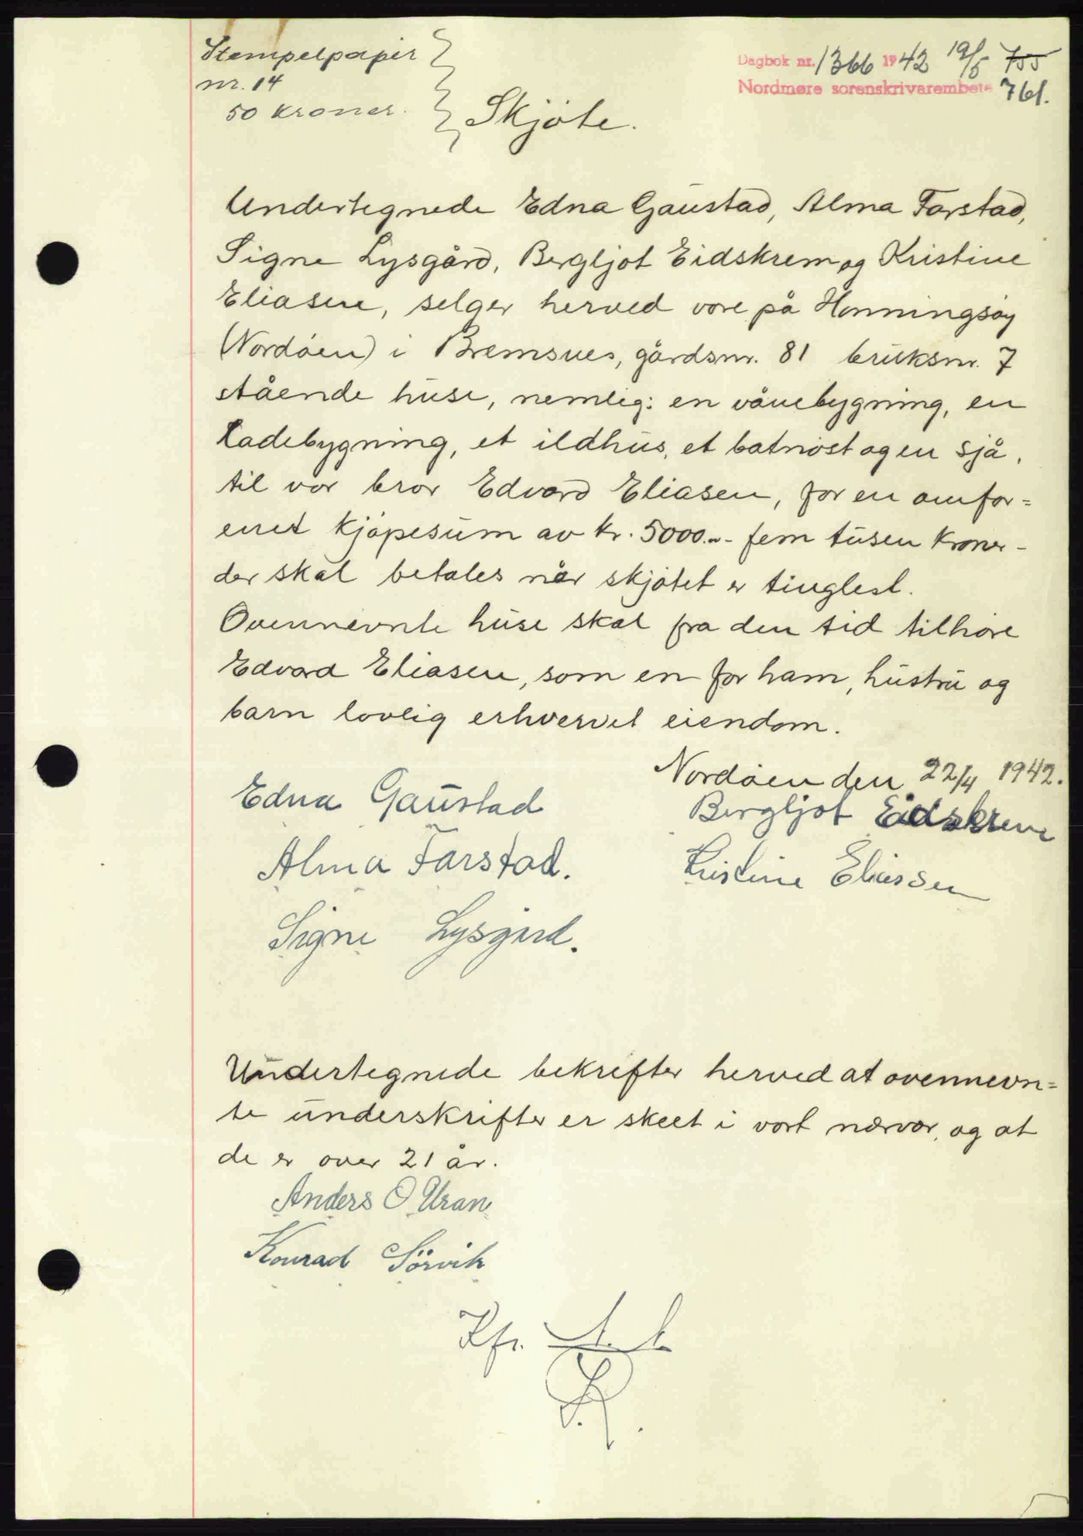 Stempelpapir
nr. 14
50 kroner.
Dagbok nr. 1366 1942 19/5 755
Nordmøre sorenskrivarembete 761.
Skjöte.
Undertegnede Edna Gaustad, Alma Farstad,
Signe Lysgård, Bergljot Eidskrem og Kristine
Eliasen, selger herved vore på Honningsöy
(Nordöen) i Bremsnes, gårdsnr. 81 bruksnr. 7
stående huse, nemlig: en vånebygning, en
ladebygning, et ildhus, et batnöst og en sjå,
til vor bror Edvard Eliasen, for en omfor=
enet kjöpesum av kr. 5000.- fem tusen kroner -
der skal betales når skjötet er tinglest.
Ovennevnte huse skal fra den tid tilhöre
Edvard Eliasen, som en for ham, hustru og
barn lovlig erhvervet eiendom.
Nordöen den 22/4 1942.
Edna Gaustad
Bergljot Eidskrem
Alma Farstad.
Kristine Eliassen
Signe Lysgård.
Undertegnede bekrefter herved at ovennevn=
te underskrifter er skeet i vort nærvær, og at
de er over 21 år.
Anders O Uran
Konrad Sörvik
Kfr.